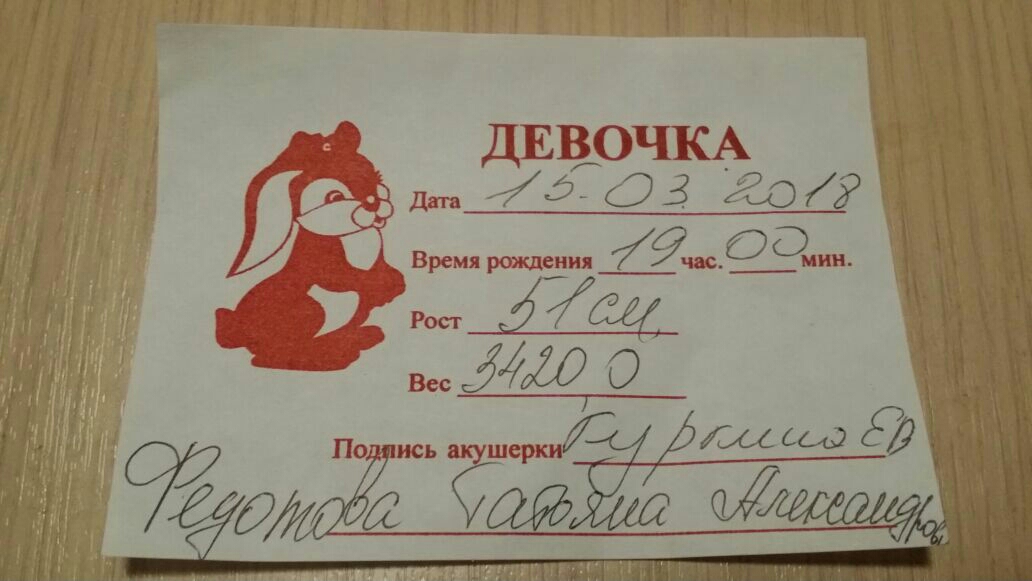 ДЕВОЧКА
Дата 15.03.2018
Время рождения 19 час. 00 мин.
Рост 51 см
Вес 3420 0
Подпись акушерки ЕВ
Федотова Татьяна Александровн